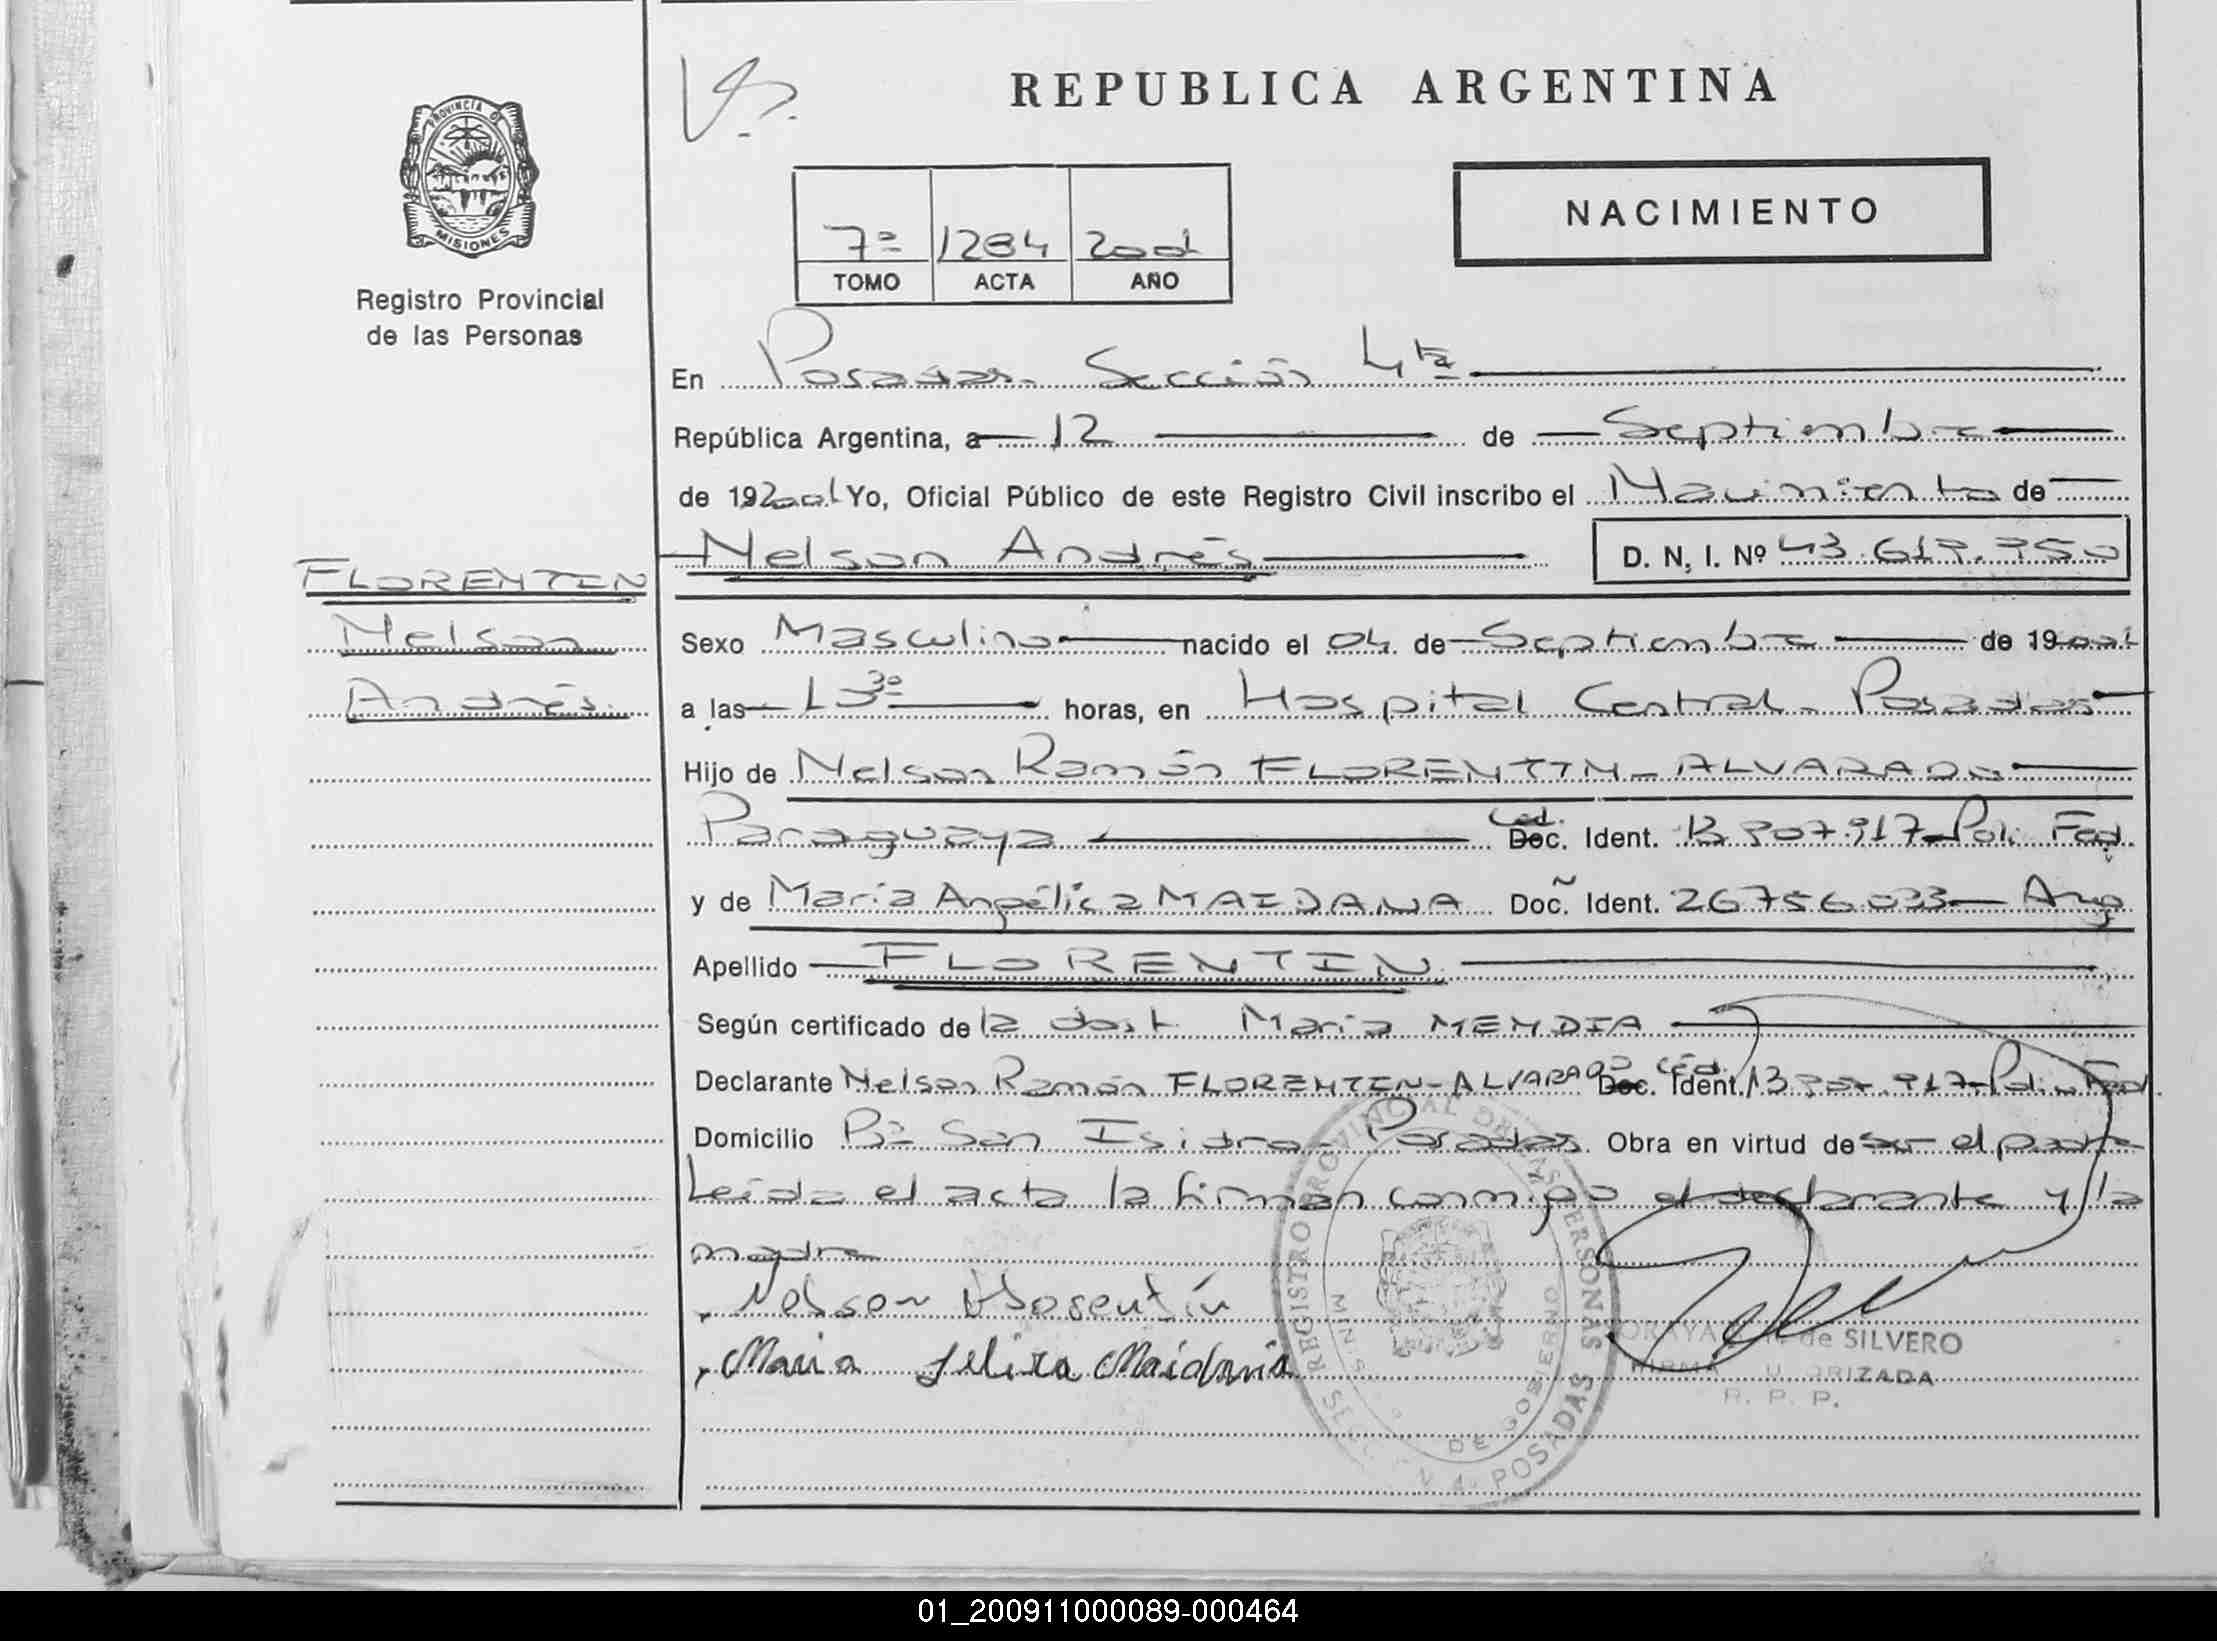 REPUBLICA ARGENTINA
PROVINCIA DE MISIONES
Registro Provincial
de las Personas
NACIMIENTO
7º 1284 2001
TOMO ACTA AÑO
En Posadas. Sección 4ta
República Argentina, a 12 de Septiembre
de 192001 Yo, Oficial Público de este Registro Civil inscribo el Nacimiento de
Nelson Andrés D. N. I. Nº 43.617.750
FLORENTIN
Nelson
Andrés
Sexo Masculino nacido el 04 de Septiembre de 192001
a las 13 30 horas, en Hospital Central. Posadas
Hijo de Nelson Ramón FLORENTIN - ALVARADO
Paraguaya Céd. Doc. Ident. 13.907.917 - Poli. Fed.
y de María Angélica MAIDANA Doc. Ident. 26756033 - Arg
Apellido FLORENTIN
Según certificado de la obst. María MENDIA
Declarante Nelson Ramón FLORENTIN - ALVARADO Céd. Doc. Ident. 13.907.917 - Poli. Fed
Domicilio Bº San Isidro - Posadas. Obra en virtud de ser el padre
Leída el acta la firman conmigo el declarante y la
madre
Nelson Florentín
Maria Maidana
REGISTRO PROVINCIAL DE LAS PERSONAS
DE GOBIERNO
POSADAS
de SILVERO
R. P. P.
01_200911000089-000464